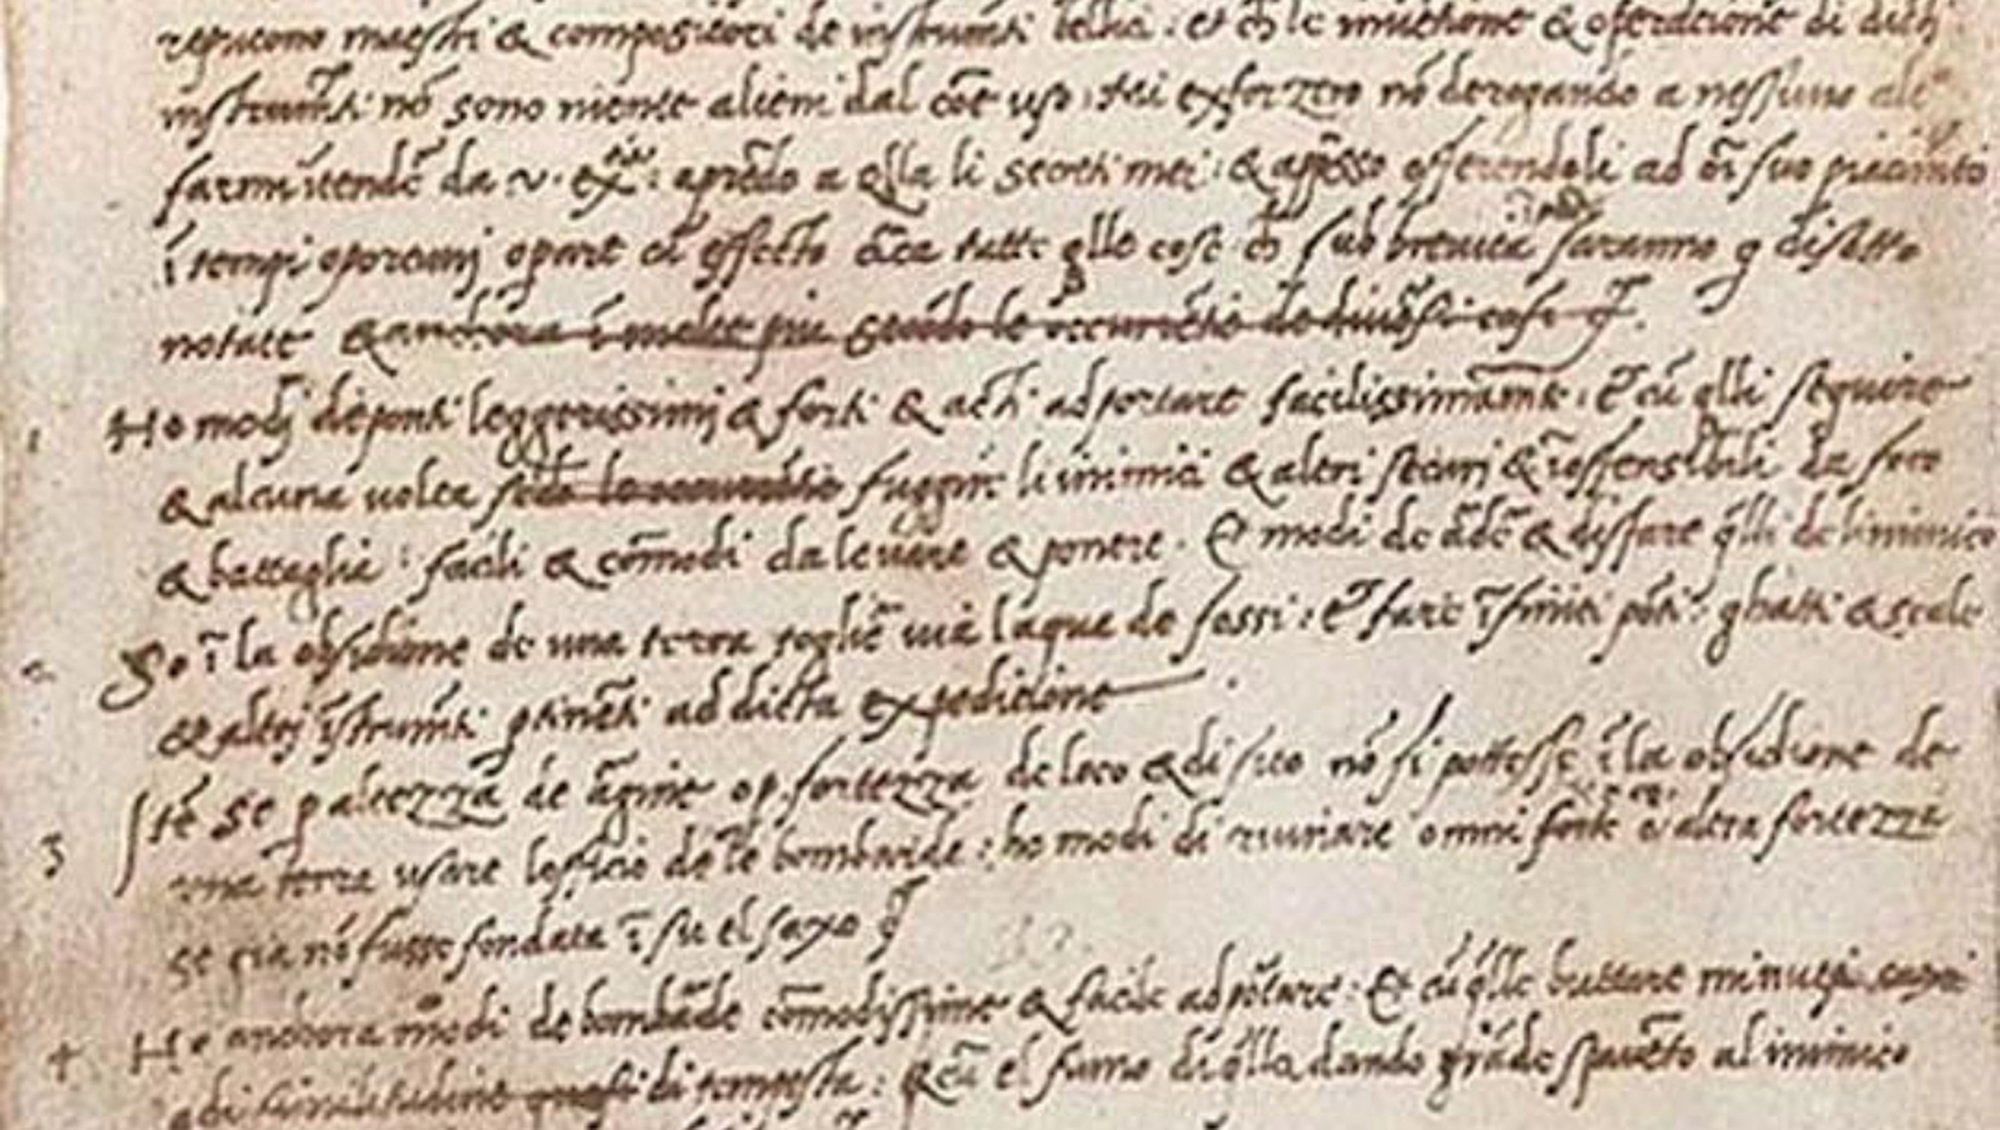 reputono maestri & compositori de instrumti bellici: et ch le inuētione & operatione di dicti
instrumti nō sono niente alieni dal cōe uso: mi exforzero nō derogando a nessuno alt°
farmi ītendē da v. exia: aprēdo a qlla li secreti mei: & appsso offerendoli ad oī suo piacimto
ī tempi oportuni operare cū effecto circa tutte qlle cose ch sub breuita saranno q disotto
notate & anchora ī molte piu secōdo le occurrētie de diuersi casi
1 Ho modi de ponti leggerissimi & forti & acti ad portare facilissimamte: Et cū qlli seguire
& alcuna volta secōdo le occurrētie fuggire li inimici & altri securi & īoffensibili da foco
& battaglia: facili & cōmodi da leuare & ponere. Et modi de ardē & disfare qlli de linimico
2 So ī la obsidione de una terra togliē uia laqua de fossi: et fare īfiniti pōti ghatti & scale
& altri īstrumti ptinēti ad dicta expeditione
3 Itē se p altezza de argine o p fortezza de loco & di sito nō si pottesse ī la obsidione de
una terra usare lofficio de le bombarde: ho modi di ruinare omni forte o altra fortezza
se gia nō fusse fondata ī su el saxo
4 Ho anchora modi de bombarde cōmodissime & facile ad portare: Et cū qlle buttare minuti
adi similitudine quasi di tempesta: & cū el fumo di qlla dando grāde spauēto al inimico